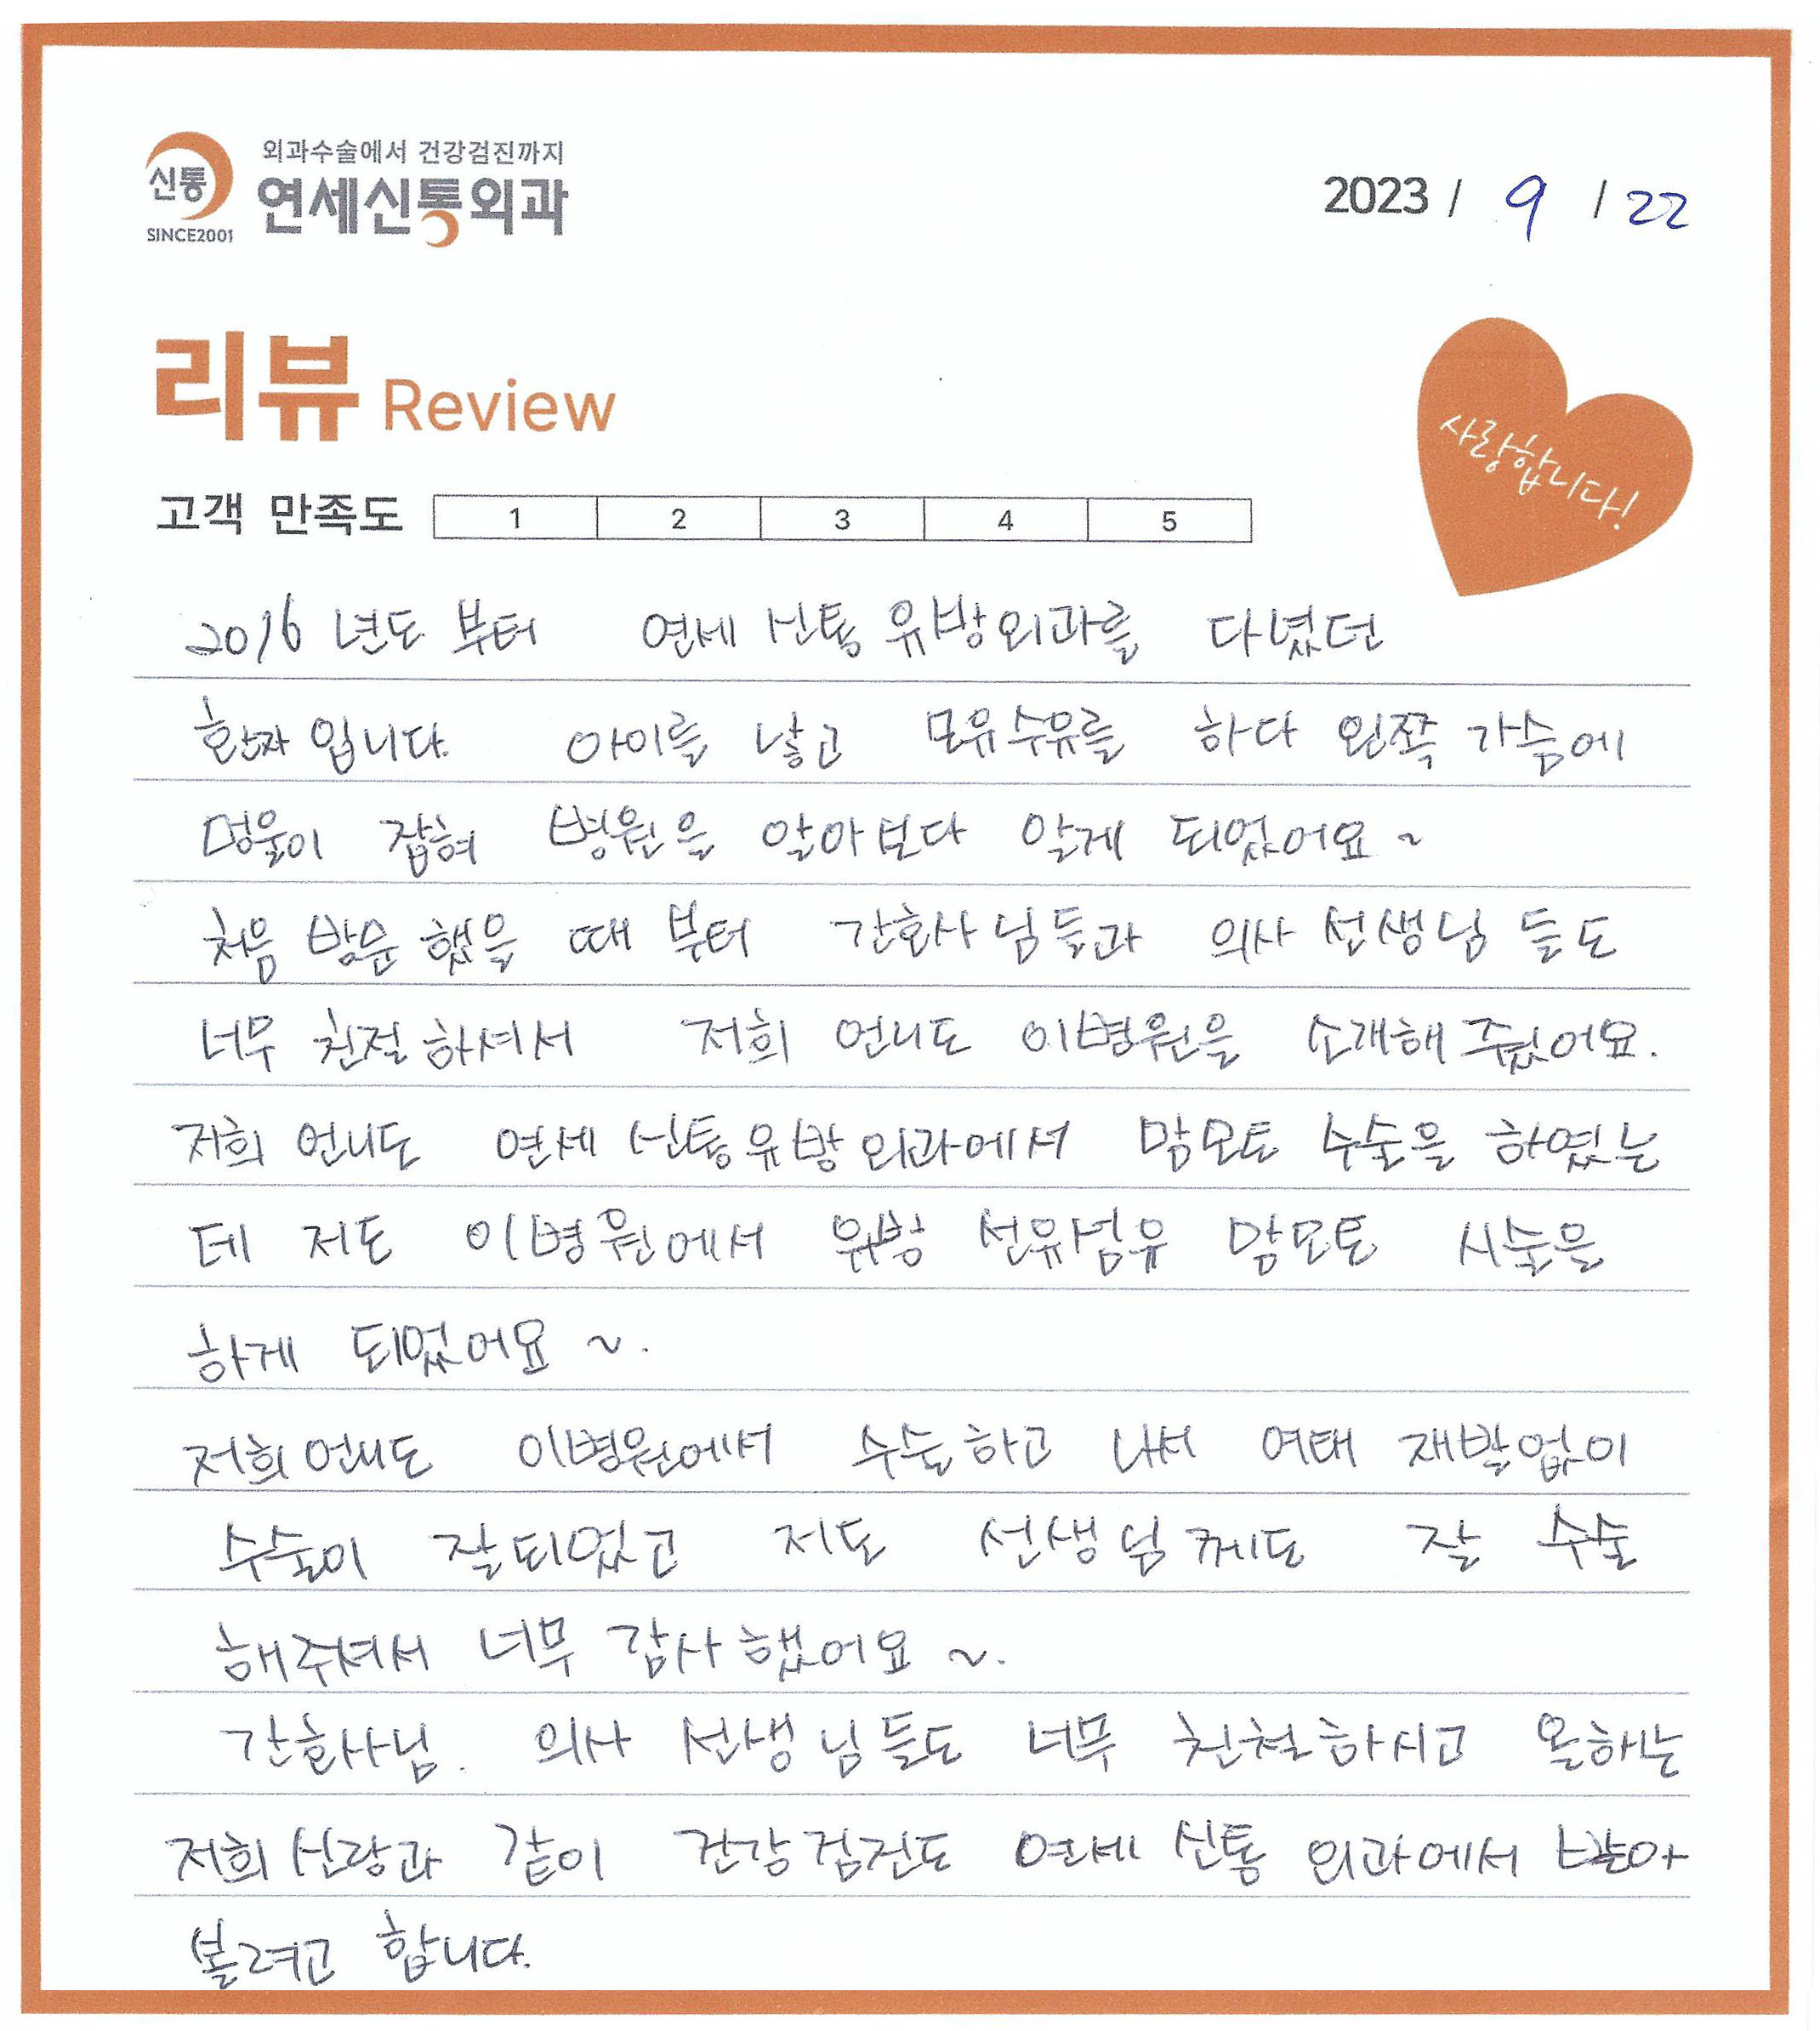 신통
SINCE2001
외과수술에서 건강검진까지
연세신통외과
2023 / 9 / 22
리뷰 Review
사랑합니다!
고객 만족도 1 2 3 4 5
2016 년도 부터 연세 신통 유방외과를 다녔던
환자 입니다. 아이를 낳고 모유수유를 하다 왼쪽 가슴에
멍울이 잡혀 병원을 알아보다 알게 되었어요~
처음 방문 했을 때 부터 간호사 님들과 의사 선생님 들도
너무 친절 하셔서 저희 언니도 이병원을 소개해 주웠어요.
저희 언니도 연세 신통유방외과에서 맘모토 수술을 하였는
데 저도 이병원에서 유방 선유섬유 맘모톰 시술을
하게 되었어요 ~.
저희언니도 이병원에서 수술하고 나서 여태 재발없이
수술이 잘되었고 저도 선생님께도 잘 수술
해주셔서 너무 감사했어요 ~.
간호사님. 의사 선생님들도 너무 친철하시고 올해는
저희신랑과 같이 건강검진도 연세 신통 외과에서 받아
볼려고 합니다.